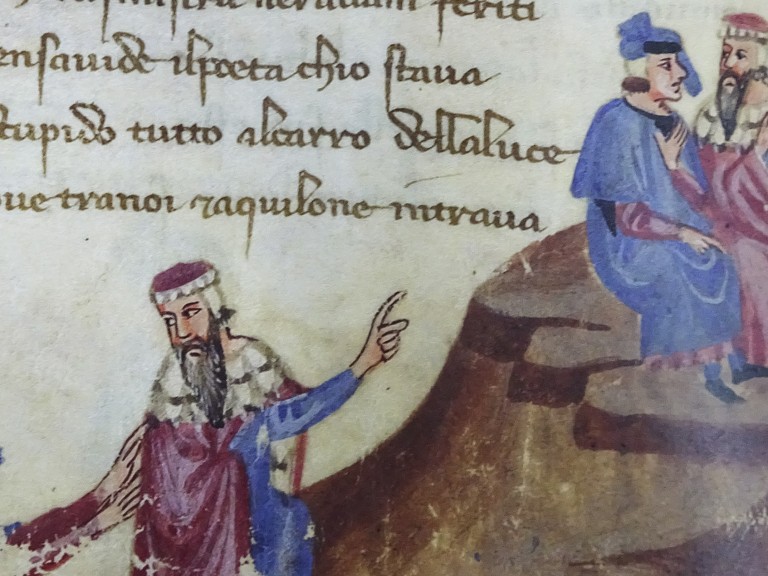 sinistra nerauam feriti
ensauide ilpoeta chio staua
tupido tutto alcarro dellaluce
oue tranoi ⁊aquilone intraua